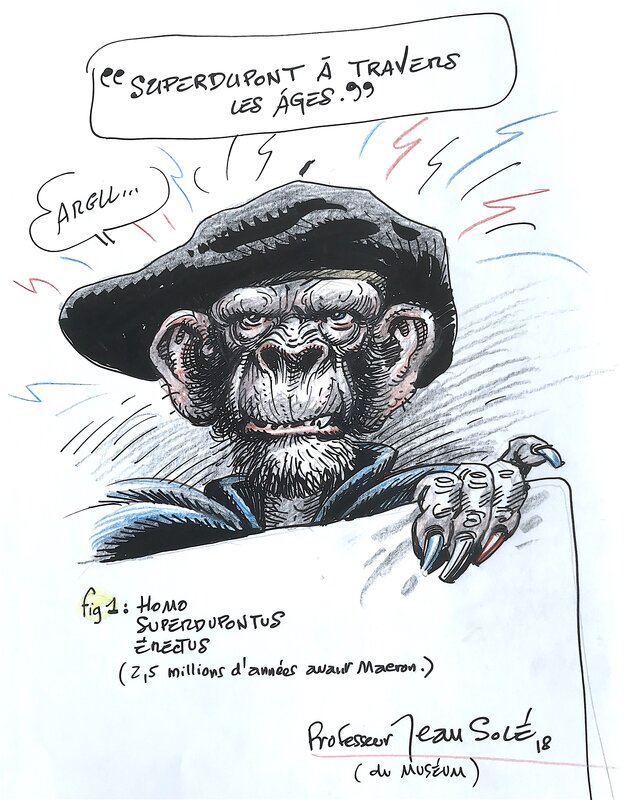 “SUPERDUPONT À TRAVERS
LES ÂGES.”
AREU...
fig 1: HOMO
SUPERDUPONTUS
ÉRECTUS
(2,5 millions d'années avant Macron.)
Professeur Jean Solé 18
(du MUSÉUM)